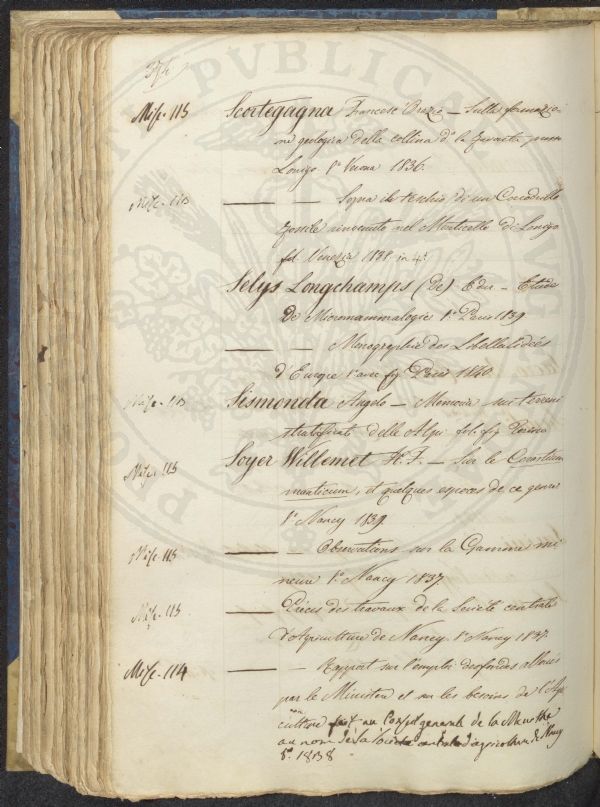 Misc. 115 Scortegagna Francesc Orazio — Sulla formazio-
ne geologica della collina da la presso
Lonigo 8° Verona 1836.
Misc. 115 — — Sopra il teschio di un Coccodrillo
fossile rinvenuto nel Monticello di Lonigo
fol. Venezia 1838. in 4°.
Selys Longchamps (De) Edm. — Etudes
De Micromammalogie 8° Paris 1839
— — Monographie des Libellulidées
d'Europe 8° avec fig Paris 1840
Misc. 115 Sismonda Angelo — Memoria sui terreni
stratificati delle Alpi fol. fig Torino
Misc. 115 Soyer Willemet H. F. — Sur le
, et quelques especes de ce genre
8° Nancy 1839.
Misc. 115 — — Observations sur la Gamme mi-
neure 8° Nancy 1837
Misc. 115 — Précis des travaux de la Société centrale
d'Agriculture de Nancy. 8° Nancy 1837.
Misc. 114 — — Rapport sur l'emploi des fonds alloués
par le Ministère et sur les besoins de l'Agri-
culture fait au Conseil general de la Meurthe
au nom de la Société centrale d'agriculture de Nancy
8°. 1838